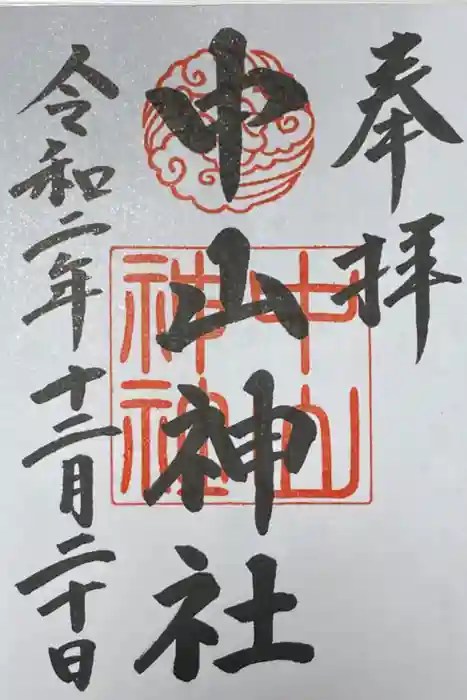 奉拝
中山神社
中山神社
令和二年十二月二十日